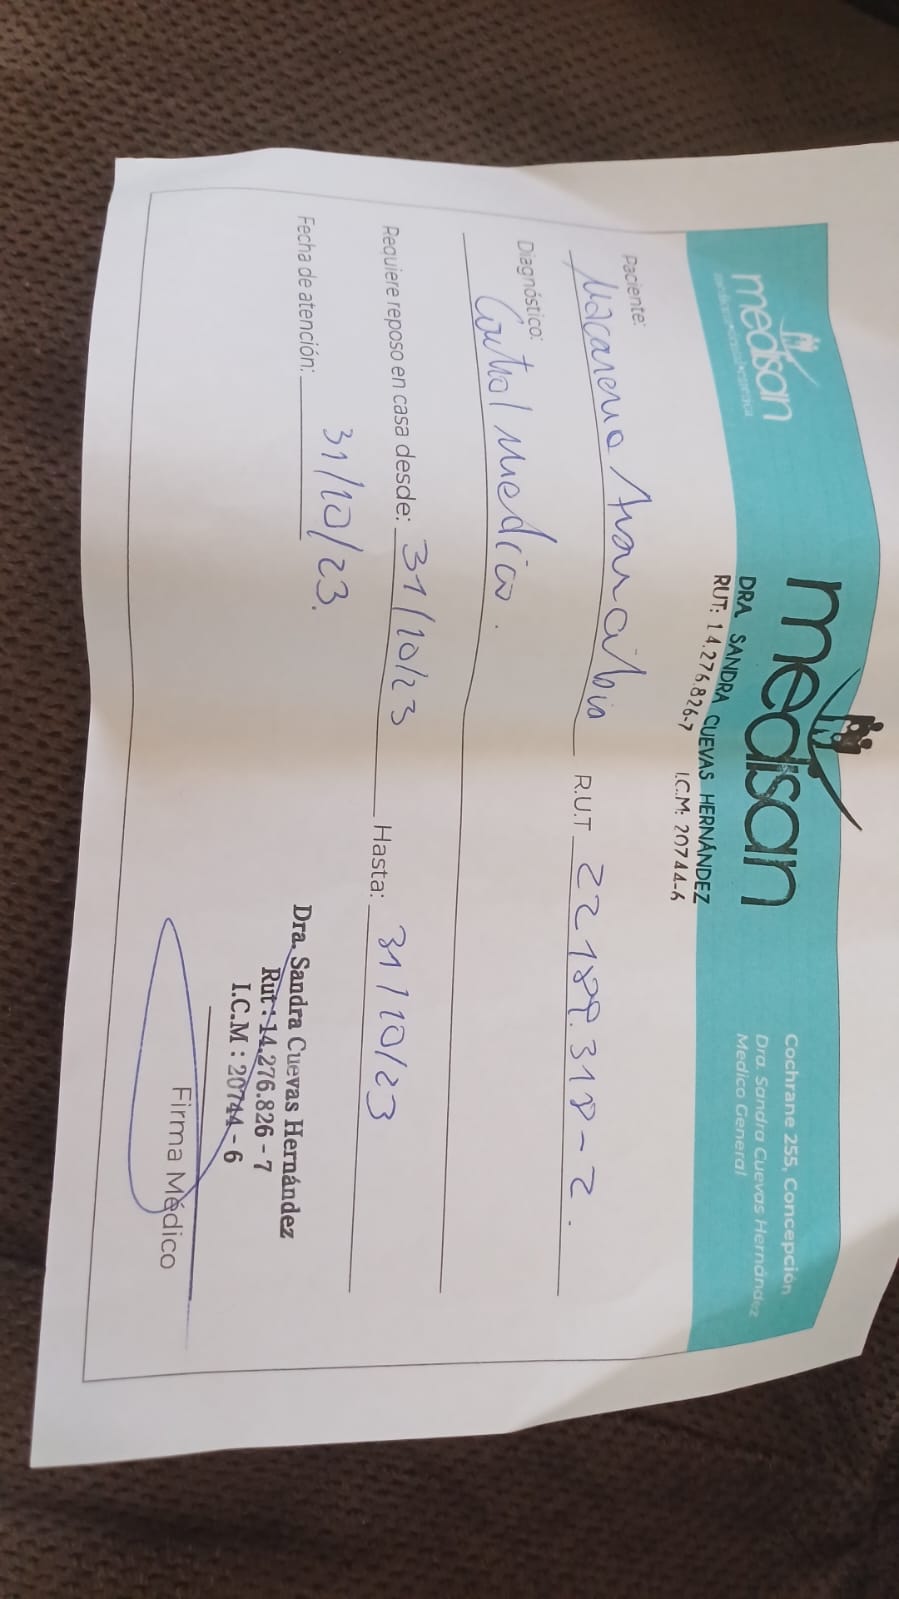 medisan
medisan
DRA. SANDRA CUEVAS HERNÁNDEZ
RUT: 14.276.826-7 I.C.M: 20744-6
Cochrane 255, Concepción
Dra. Sandra Cuevas Hernández
Medico General
Paciente: Macarena Arancibia R.U.T 22189.318-2.
Diagnóstico: Control medico.
Requiere reposo en casa desde: 31/10/23 Hasta: 31/10/23
Fecha de atención: 31/10/23.
Dra. Sandra Cuevas Hernández
Rut: 14.276.826-7
I.C.M : 20744-6
Firma Médico